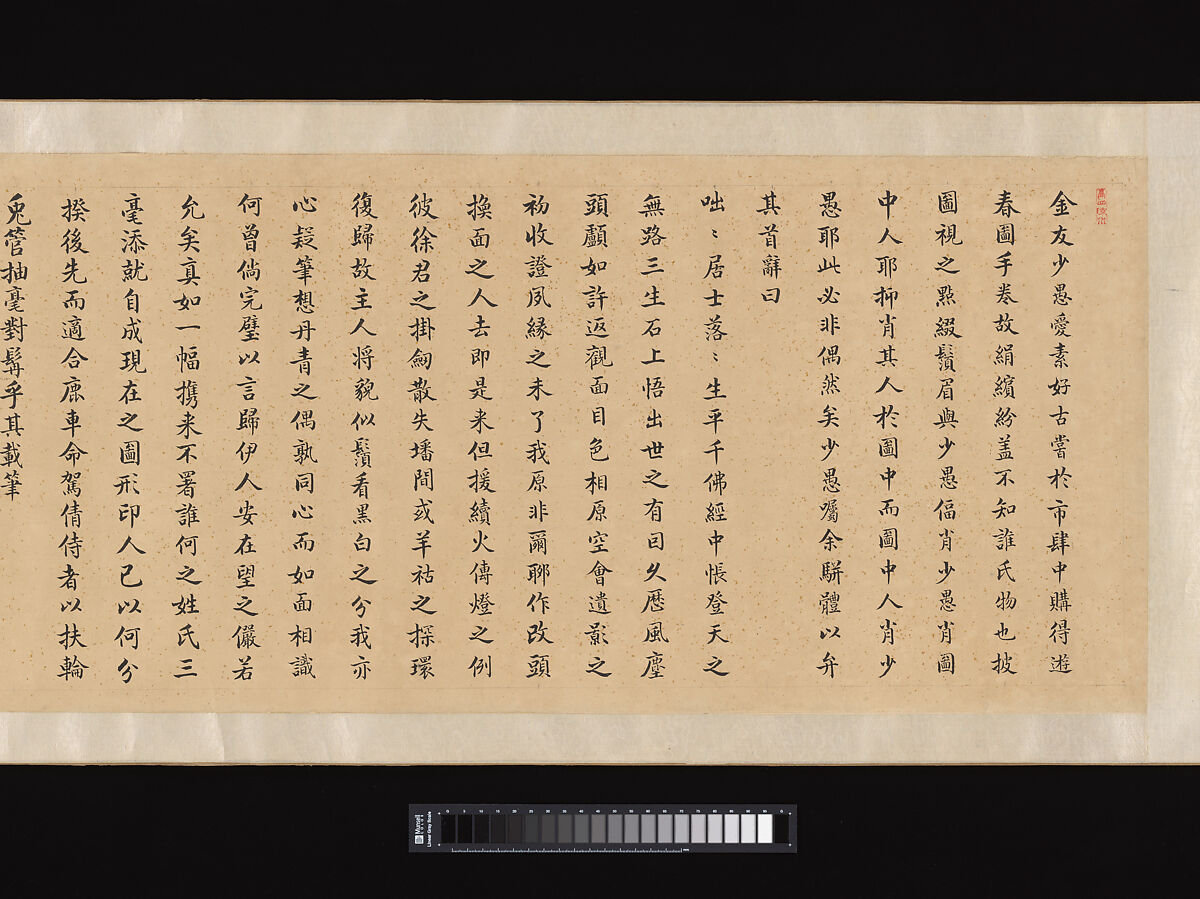 金友少愚愛素好古嘗於市肆中購得遊
春圖手卷故絹繽紛盖不知誰氏物也披
圖視之點綴鬚眉與少愚偪肖少愚肖圖
中人耶抑肖其人於圖中而圖中人肖少
愚耶此必非偶然矣少愚囑余駢體以弁
其首辭曰
咄〻居士落〻生平千佛經中悵登天之
無路三生石上悟出世之有因久歷風塵
頭顱如許返觀面目色相原空會遺影之
初收證夙緣之未了我原非爾聊作改頭
換面之人去即是来但援續火傳燈之例
彼徐君之掛劒散失墦間或羊祜之探環
復歸故主人將貌似鬚看黑白之分我亦
心疑筆想丹青之偶孰同心而如面相識
何曾倘完璧以言歸伊人安在望之儼若
允矣真如一幅携来不署誰何之姓氏三
毫添就自成現在之圖形印人已以何分
揆後先而適合鹿車命駕倩侍者以扶輪
兎管抽毫對髯乎其載筆
Munsell
COLOR
Linear Gray Scale